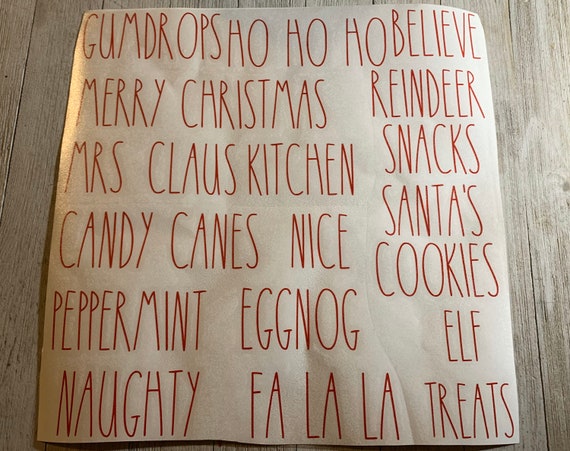 GUMDROPS HO HO HO BELIEVE
MERRY CHRISTMAS REINDEER
SNACKS
MRS CLAUS KITCHEN
SANTA'S
CANDY CANES NICE
COOKIES
PEPPERMINT EGGNOG ELF
NAUGHTY FA LA LA TREATS